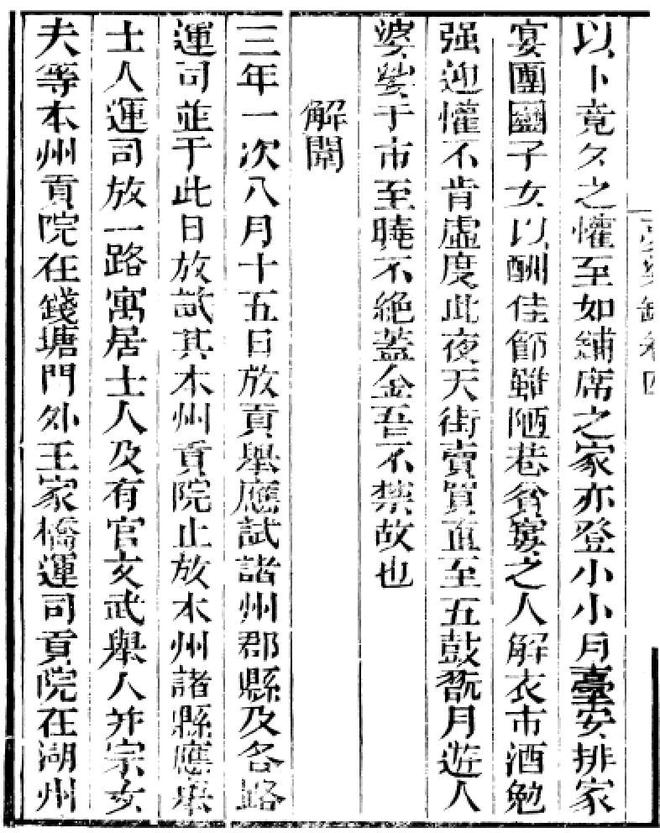 夢粱錄卷四
以卜竟夕之懽至如鋪席之家亦登小小月臺安排家
宴團圞子女以酬佳節雖陋巷貧窶之人解衣市酒勉
强迎懽不肯虛度此夜天街賣買直至五鼓翫月遊人
婆娑于市至曉不絕蓋金吾不禁故也
解闈
三年一次八月十五日放貢舉應試諸州郡縣及各路
運司並于此日放試其本州貢院止放本州諸縣應舉
士人運司放一路寓居士人及有官文武舉人并宗女
夫等本州貢院在錢塘門外王家橋運司貢院在湖州